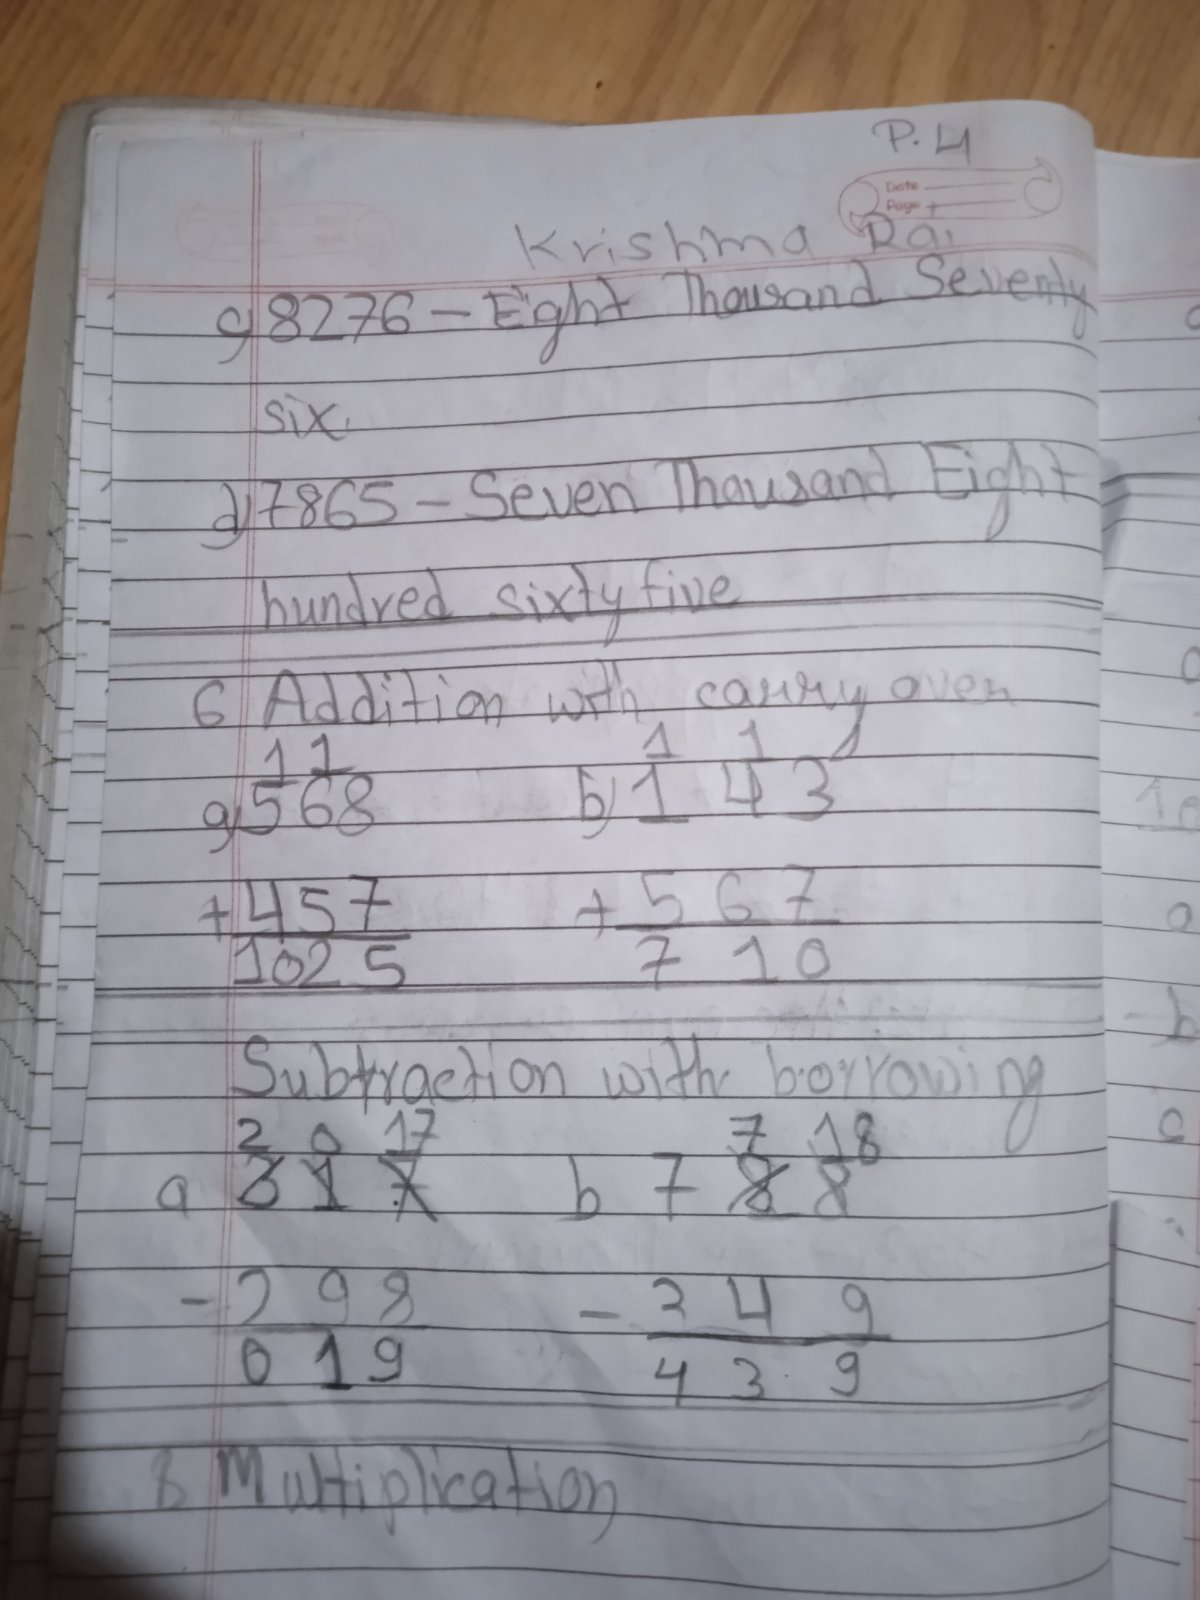 P.4
Date
Page
Krishma Rai
c) 8276 - Eight Thousand Seventy
six.
d) 7865 - Seven Thousand Eight
hundred sixty five
6 Addition with carry over
1 1 1 1
a) 568 b) 1 4 3
+ 457 + 5 6 7
1025 7 1 0
Subtraction with borrowing
2 0 17 7 18
a 3 1 7 b 7 8 8
- 2 9 8 - 3 4 9
0 1 9 4 3 9
8 Multiplication